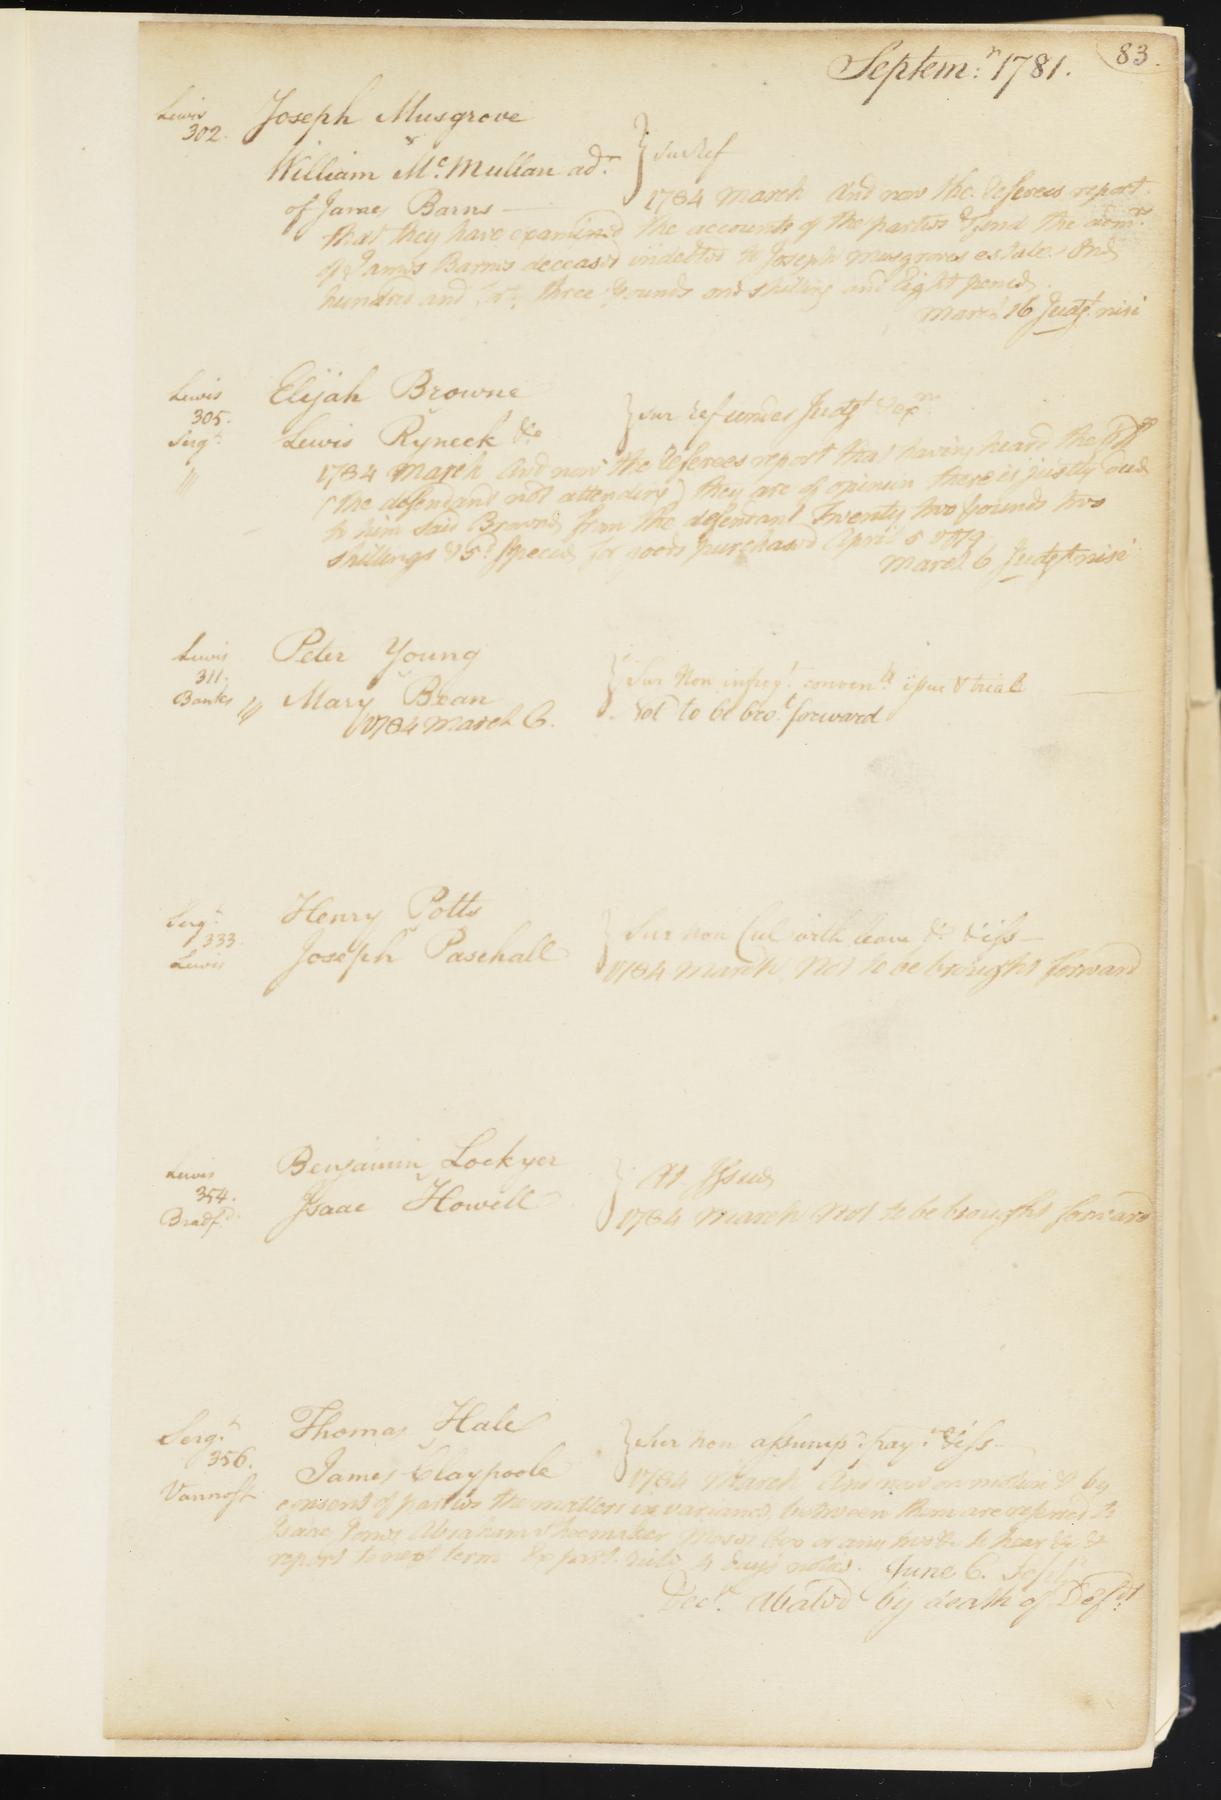 83.
Septem:r 1781.
Lewis
302.
Joseph Musgrove
v
William Mc.Mullan adr.
of James Barns
Sur Ref
1784 March And now the Referees report
that they have examined the accounts of the parties & find the admr.
of James Barns deceased indebted to Joseph Musgroves estate One
hundred and forty three pounds one shilling and Eight pence
March 16 Judgt. nisi
Lewis
305.
Sergt.
"
Elijah Browne
Lewis Ryneck &c
Sur Ref under Judgt & exn.
1784 March And now the Referees report that having heard the Plff
(the defendant not attending) they are of opinion there is justly due
to him said Browne from the defendant Twenty two pounds two
shillings & 5d. Specie for goods purchased April 5 1779
March 6 Judgt nisi
Lewis
311.
Bankes
Peter Young
v
Mary Bean
1784 March 6.
Sur Non infregt. convents issue & trial
Not to be brot. forward
Sergt.
333.
Lewis
Henry Potts
v
Joseph Paschall
Sur non Cul with leave &c & iss
1784 March Not to be brought forward
Lewis
354.
Bradfd.
Benjamin Lockyer
v
Isaac Howell
At Issue
1784 March Not to be brought forward
Sergt.
356.
Vannost
Thomas Hale
v
James Claypoole
Sur non assumpt. payt. & iss
1784 March And now on motion & by
consent of parties the matters in variance between them are referred to
Isaac Jones Abraham Shoemaker Moses or any two &c to hear &c &
report to next term Ex parte rule 4 days notice. June 6. Septr.
Decr. Abated by death of Defdt.